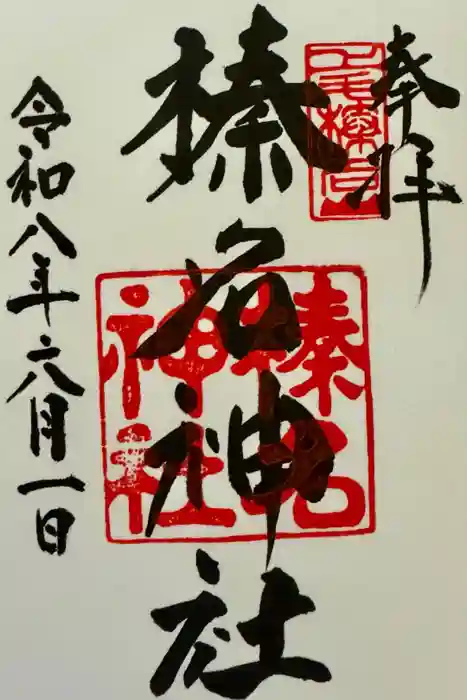 奉拝
上毛榛名山
榛名神社
榛名
神社
令和八年六月一日